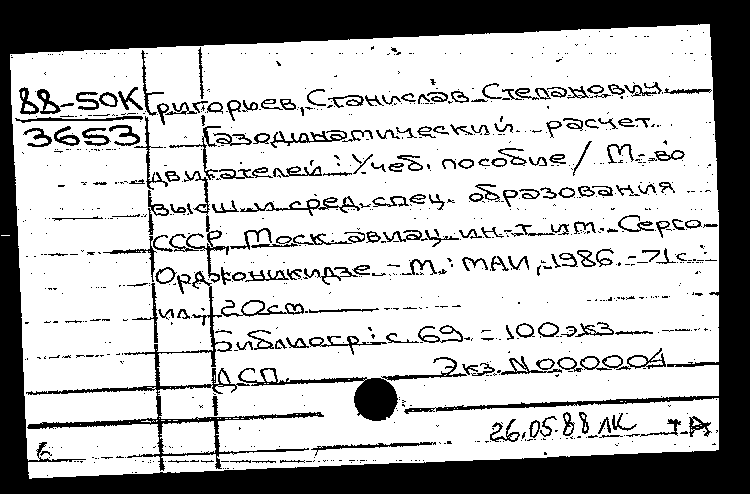 88-50К Григорьев, Станислав Степанович.
3653 Газодинамический расчет
двигателей : Учеб. пособие / М-во
высш. и сред. спец. образования
СССР, Моск. авиац. ин-т им. Серго
Орджоникидзе - М. : МАИ, -1986. - 71 с. :
ил.; 20 см
Библиогр.: с. 69. - 100 экз
ДСП. Экз. N 000004
26.05.88 ЛК
6